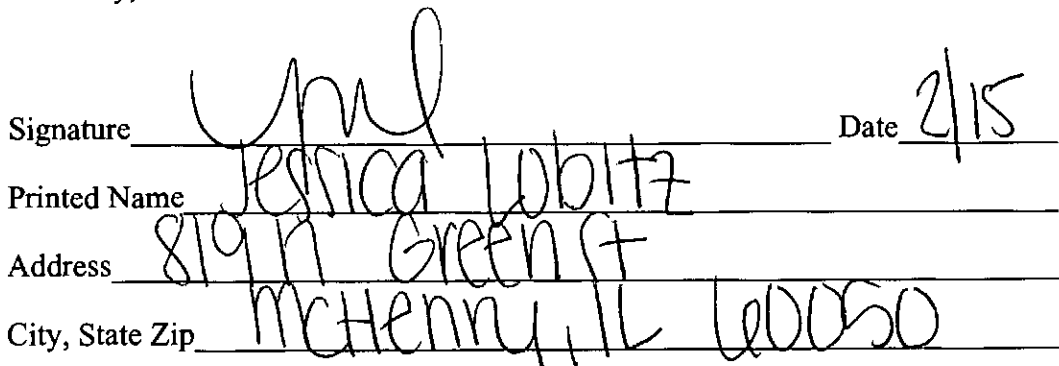 Signature Date 2/15
Printed Name Jessica Lobitz
Address 819 N Green St
City, State Zip McHenry, IL 60050